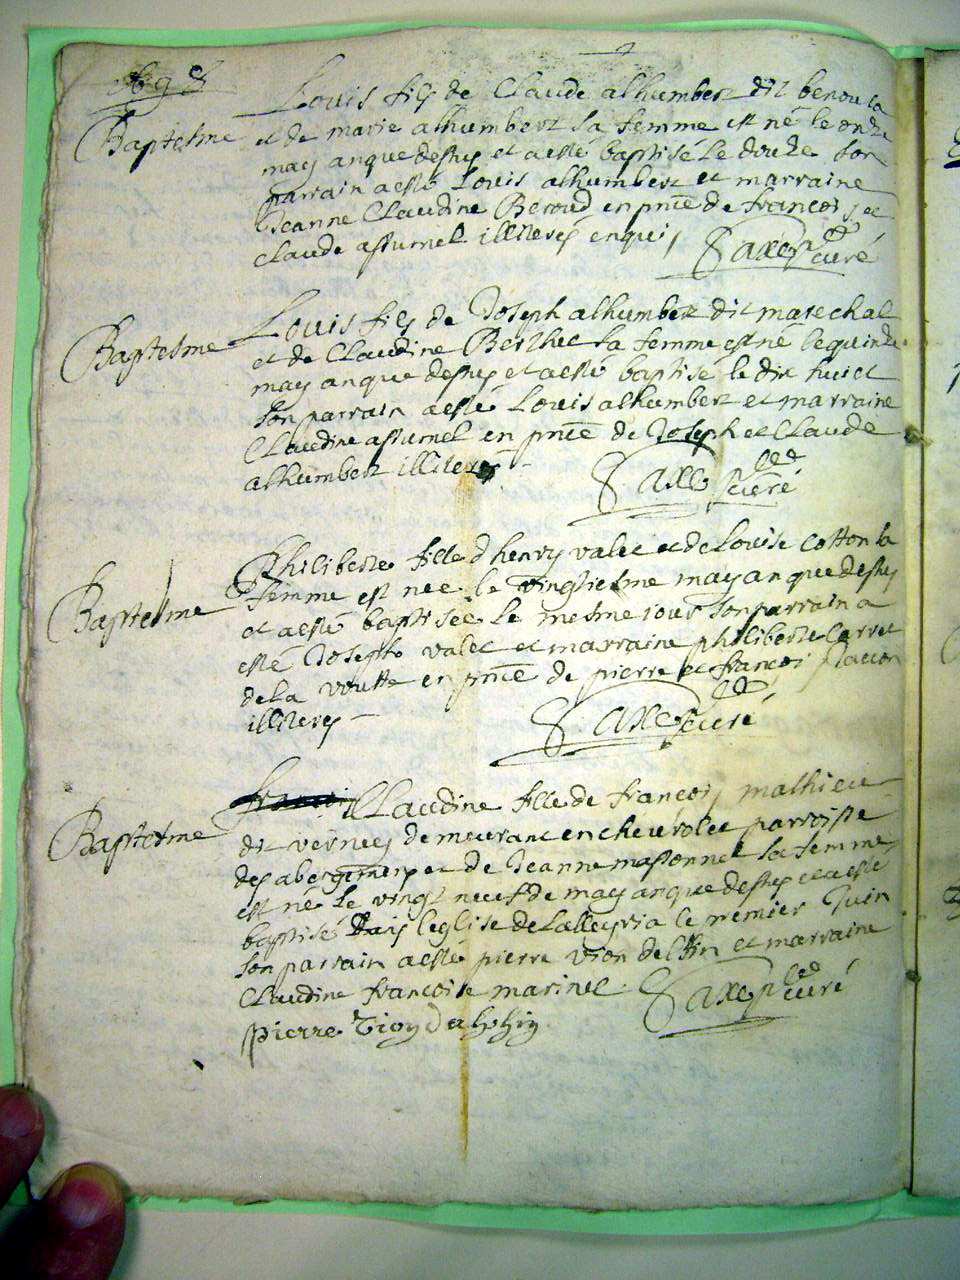 Louis fils de Claude alhumbert dit benou la
Baptesme
et de marie alhumbert sa femme est né le onze
may an que dessus et a esté baptisé le douze son
parrain a esté Louis alhumbert et marraine
Jeanne Claudine Beroud en pnce de francois et
Claude assumel illiteres enquis
Saxe curé
Baptesme
Louis fils de Joseph alhumbert dit marechal
et de Claudine Berthet sa femme est né le quinze
may an que dessus et a esté baptisé le dix huict
son parrain a esté Louis alhumbert et marraine
Claudine assumel en pnce de Joseph et Claude
alhumbert illiteres
Saxe curé
Baptesme
Philiberte fille d henry valet et de Louise Cotton sa
femme est nee le vingtiesme may an que dessus
et a esté baptisée le mesme jour son parrain a
esté Joseph valet et marraine philiberte Carret
de la voutte en pnce de pierre et francois
illiteres
Saxe curé
Baptesme
Claudine fille de francois mathieu
dit vernies demeurant en chevrolet parroisse
des abergemens et de Jeanne massonnet sa femme
est né le vingt neuf de may an que dessus et a esté
baptisé dans leglise de Lalleyria le premier Juin
son parrain a esté pierre et marraine
Claudine francoise marinet
Saxe curé
Pierre